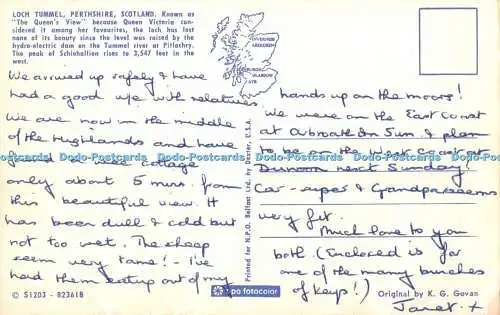 LOCH TUMMEL, PERTHSHIRE, SCOTLAND. Known as
"The Queen's View" because Queen Victoria con-
sidered it among her favourites, the loch has lost
none of its beauty since the level was raised by the
hydro-electric dam on the Tummel river at Pitlochry.
The peak of Schiehallion rises to 3,547 feet in the
west.
INVERNESS
ABERDEEN
EDINBURGH
GLASGOW
AYR
We arrived up safely & have
had a good wk with relatives.
We are now in the middle
of the Highlands and have
found a cottage
only about 5 mins. from
this beautiful view. It
has been dull & cold but
not too wet. The sheep
seem very tame! - I've
had them eating out of my
hands up on the moors!
We were on the East Coast
at Arbroath on Sun. & plan
to be on the West Coast at
Dunoon next Sunday!
Car - super & Grandpa seems
very fit.
Much love to you
both. (Enclosed is for
one of the many bunches
of keys!)
Janet x
Printed for N.P.O. Belfast Ltd. by Dexter, U.S.A.
© S1203 - 82361B
npo fotocolor
Original by K. G. Govan
Dodo-Postcards Dodo-Postcards Dodo-Postcards Dodo-Postcards Dodo-Postcards